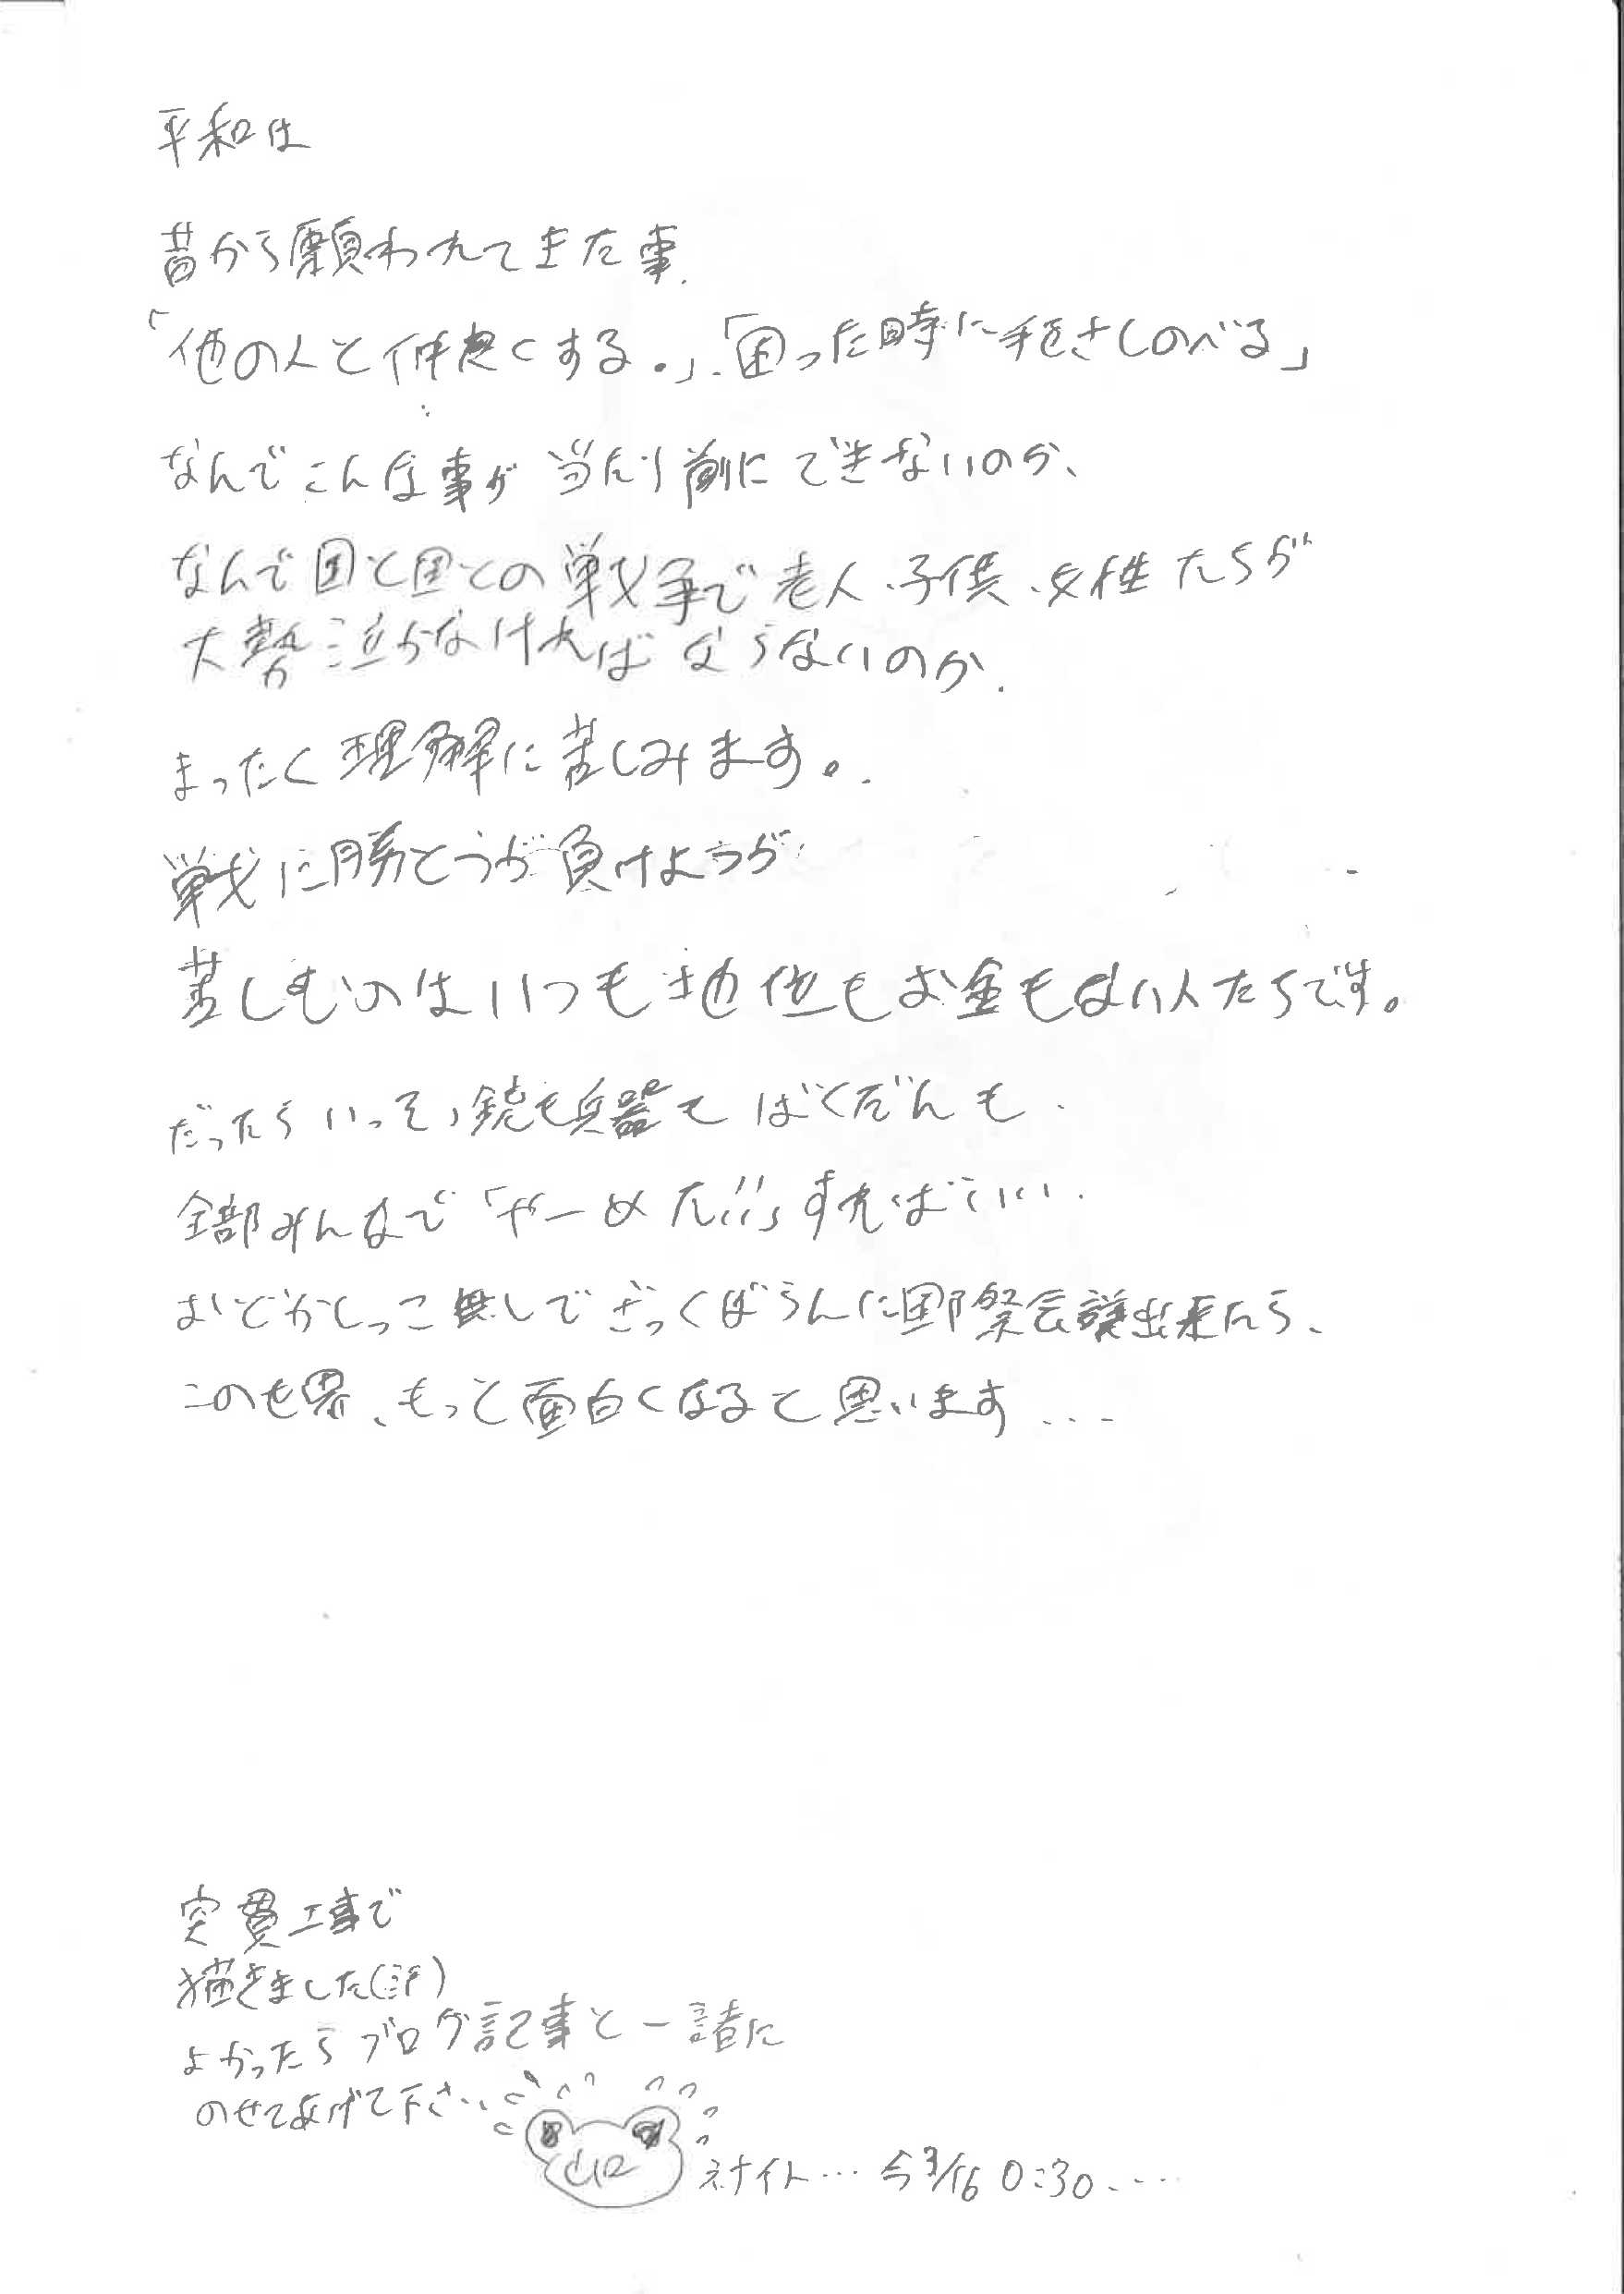 平和は
昔から願われてきた事.
「他の人と仲良くする。」、「困った時に手をさしのべる」
なんでこんな事が当たり前にできないのか、
なんで国と国との戦争で老人、子供、女性たちが
大勢泣かなければならないのか.
まったく理解に苦しみます。
戦に勝とうが負けようが
苦しむのはいつも地位もお金もない人たちです。
だったらいっそ、銃も兵器もばくだんも、
全部みんなで「やーめた!!」すればいい.
おどかしっこ無しでざっくばらんに国際会議出来たら、
この世界、もっと面白くなると思います...
突貫工事で
描きました(汗)
よかったらブログ記事と一諸に
のせてあげて下さい
今3/16 0:30....